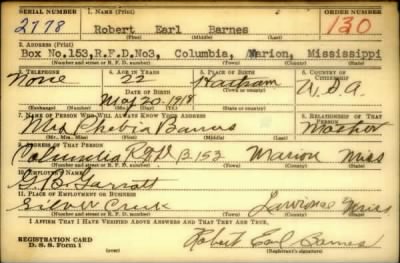 SERIAL NUMBER 1. NAME (Print) ORDER NUMBER
2778 Robert Earl Barnes 130
(First) (Middle) (Last)
2. ADDRESS (Print)
Box No.153,R.F.D.No3, Columbia, Marion, Mississippi
(Number and street or R. F. D. number) (Town) (County) (State)
3. TELEPHONE 4. AGE IN YEARS 5. PLACE OF BIRTH 6. COUNTRY OF CITIZENSHIP
None 22
DATE OF BIRTH (Town or county) U.S.A.
May 20-1918
(Exchange) (Number) (Mo.) (Day) (Yr.) (State or country)
7. NAME OF PERSON WHO WILL ALWAYS KNOW YOUR ADDRESS 8. RELATIONSHIP OF THAT PERSON
Mrs. Barnes Mother
(Mr., Mrs., Miss) (First) (Middle) (Last)
9. ADDRESS OF THAT PERSON
Columbia RFD B 152 Marion Miss
(Number and street or R. F. D. number) (Town) (County) (State)
10. EMPLOYER'S NAME
Garratt
11. PLACE OF EMPLOYMENT OR BUSINESS
Silver Creek Lawrence Miss
(Number and street or R. F. D. number) (Town) (County) (State)
I AFFIRM THAT I HAVE VERIFIED ABOVE ANSWERS AND THAT THEY ARE TRUE.
REGISTRATION CARD
D. S. S. Form 1 Robert Earl Barnes